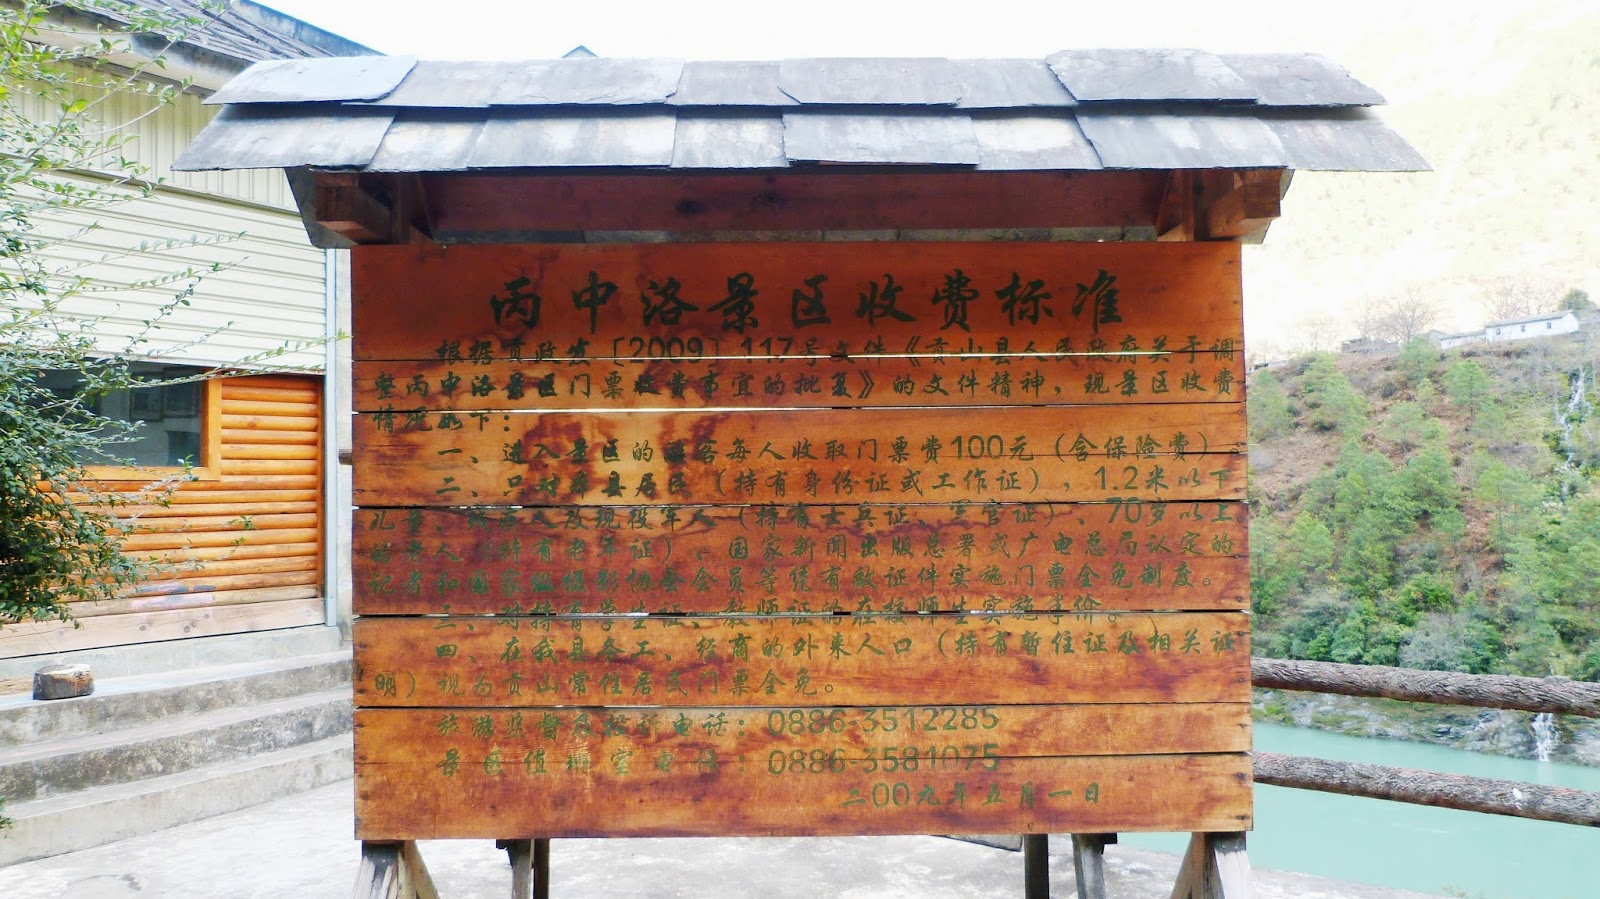 丙中洛景区收费标准
根据贡政发〔2009〕117号文件《贡山县人民政府关于调
整丙中洛景区门票收费事宜的批复》的文件精神，现景区收费
情况如下：
一、进入景区的游客每人收取门票费100元（含保险费）。
二、只对本县居民（持有身份证或工作证），1.2米以下
儿童、人及现役军人（持有士兵证、军官证）、70岁以上
的老人（持有老年证）、国家新闻出版总署或广电总局认定的
记者和国家级摄影协会会员等凭有效证件实施门票全免制度。
三、对持有学生证、教师证的在校师生实施半价。
四、在我县务工、经商的外来人口（持有暂住证及相关证
明）视为贡山常住居民门票全免。
旅游监督及投诉电话：0886-3512285
景区值班室电话：0886-3581075
二00九年五月一日